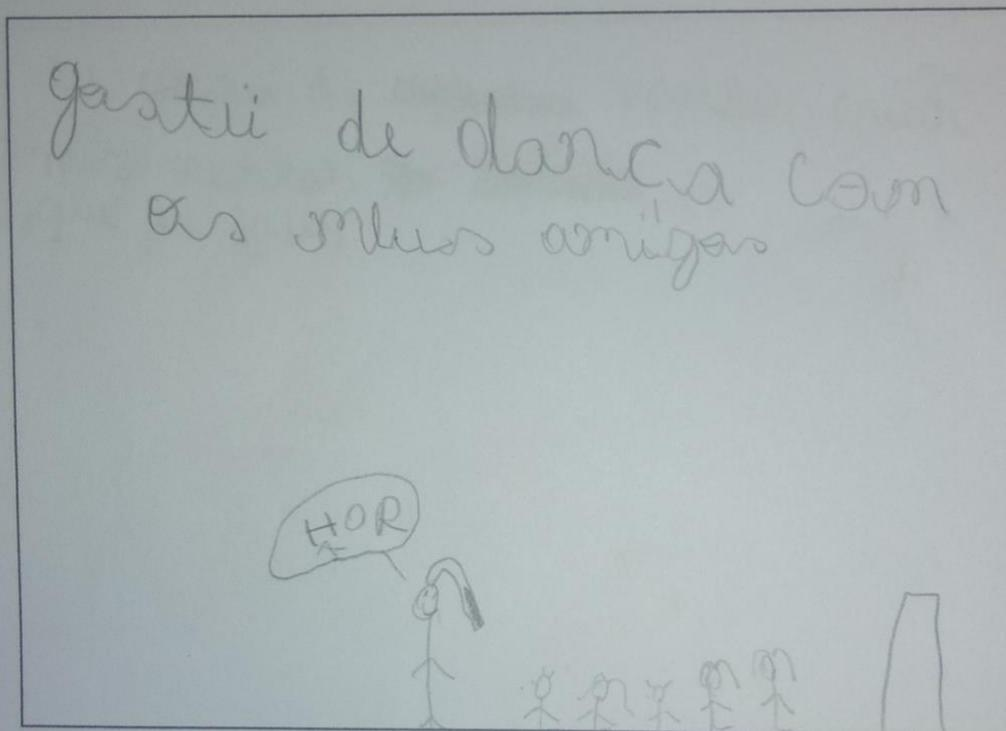 gostii de dança com
os meus amigos
HOR